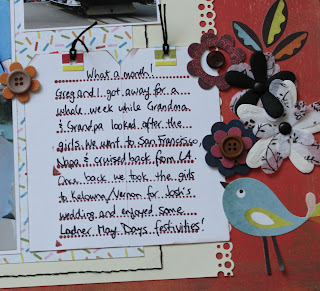 What a month!
Greg and I got away for a
whole week while Grandma
& Grandpa looked after the
girls. We went to San Francisco,
Napa & cruised back from L.A.
Once back we took the girls
to Kelowna/Vernon for Josh's
wedding and enjoyed some
Ladner May Days festivities!